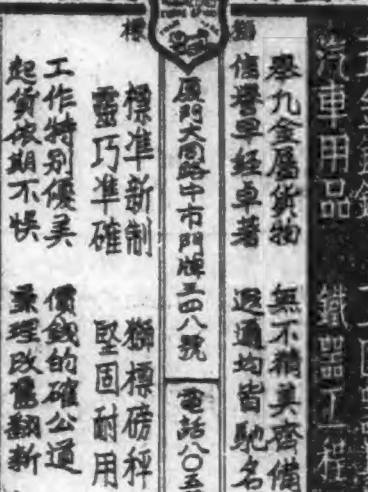 汽車用品 鐵器工程
舉凡金屬貨物 無不精美齊備
信譽早經卓著 遐邇均皆馳名
標
廈門大同路中市門牌三四八號 電話八〇五
標準新制 獅標磅秤
靈巧準確 堅固耐用
工作特別優美 價錢的確公道
起貨依期不悞 兼理改舊翻新